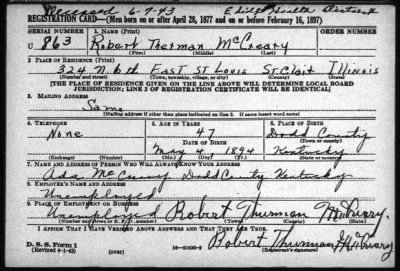 Deceased 6-9-43
REGISTRATION CARD—(Men born on or after April 28, 1877 and on or before February 16, 1897)
SERIAL NUMBER 1. NAME (Print) ORDER NUMBER
U 863 Robert Therman McCreary
(First) (Middle) (Last)
2. PLACE OF RESIDENCE (Print)
324 N 6th East St Louis St Clair Illinois
(Number and street) (Town, township, village, or city) (County) (State)
[THE PLACE OF RESIDENCE GIVEN ON THE LINE ABOVE WILL DETERMINE LOCAL BOARD
JURISDICTION; LINE 2 OF REGISTRATION CERTIFICATE WILL BE IDENTICAL]
3. MAILING ADDRESS
Same
[Mailing address if other than place indicated on line 2. If same insert word same]
4. TELEPHONE 5. AGE IN YEARS 6. PLACE OF BIRTH
None 47 Todd County
DATE OF BIRTH (Town or county)
May 4 1894 Kentucky
(Exchange) (Number) (Mo.) (Day) (Yr.) (State or country)
7. NAME AND ADDRESS OF PERSON WHO WILL ALWAYS KNOW YOUR ADDRESS
Ada McCreary Todd County Kentucky
8. EMPLOYER'S NAME AND ADDRESS
Unemployed
9. PLACE OF EMPLOYMENT OR BUSINESS
Unemployed Robert Thurman McCreary.
(Number and street or R. F. D. number) (Town) (County) (State)
I AFFIRM THAT I HAVE VERIFIED ABOVE ANSWERS AND THAT THEY ARE TRUE.
Robert Thurman McCreary
D. S. S. Form 1
(Revised 4-1-42) (over) 16-21630-2 (Registrant's signature)